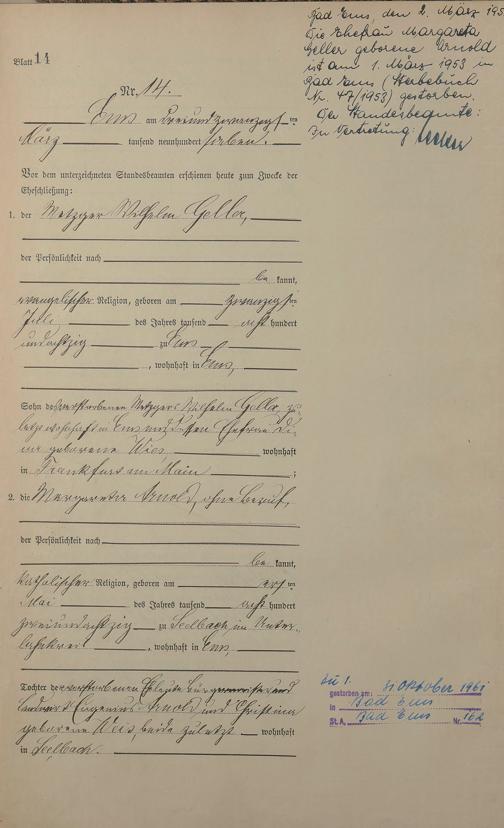 Bad Ems, den 2. März 195
Die Ehefrau Margareta
Geller geborene Arnold
ist am 1. März 1953 in
Bad Ems (Sterbebuch
Nr. 47/1953) gestorben.
Der Standesbeamte:
In Vertretung:
Blatt 14
Nr. 14.
Ems am dreiundzwanzigsten
März tausend neunhundert sieben.
Vor dem unterzeichneten Standesbeamten erschienen heute zum Zwecke der
Eheschließung:
1. der Metzger Wilhelm Geller,
der Persönlichkeit nach
be kannt,
evangelischer Religion, geboren am zwanzigsten
Juli des Jahres tausend acht hundert
undachtzig zu Ems
, wohnhaft in Ems,
Sohn des verstorbenen Metzgers Wilhelm Geller, zu-
letzt wohnhaft in Ems und dessen Ehefrau
geborene wohnhaft
in Frankfurt am Main ;
2. die Margareta Arnold, ohne Beruf,
der Persönlichkeit nach
be kannt,
katholischer Religion, geboren am ersten
Mai des Jahres tausend acht hundert
zweiundachtzig zu Seelbach, im Unter-
lahnkreis , wohnhaft in Ems,
Tochter der verstorbenen Eheleute Bürgermeister und
Landwirt Eugenius Arnold und Christina
geborene Weis, beide zuletzt wohnhaft
in Seelbach.
zu 1.
gestorben am: 4. Oktober 1961
in Bad Ems
St.A. Bad Ems Nr. 162